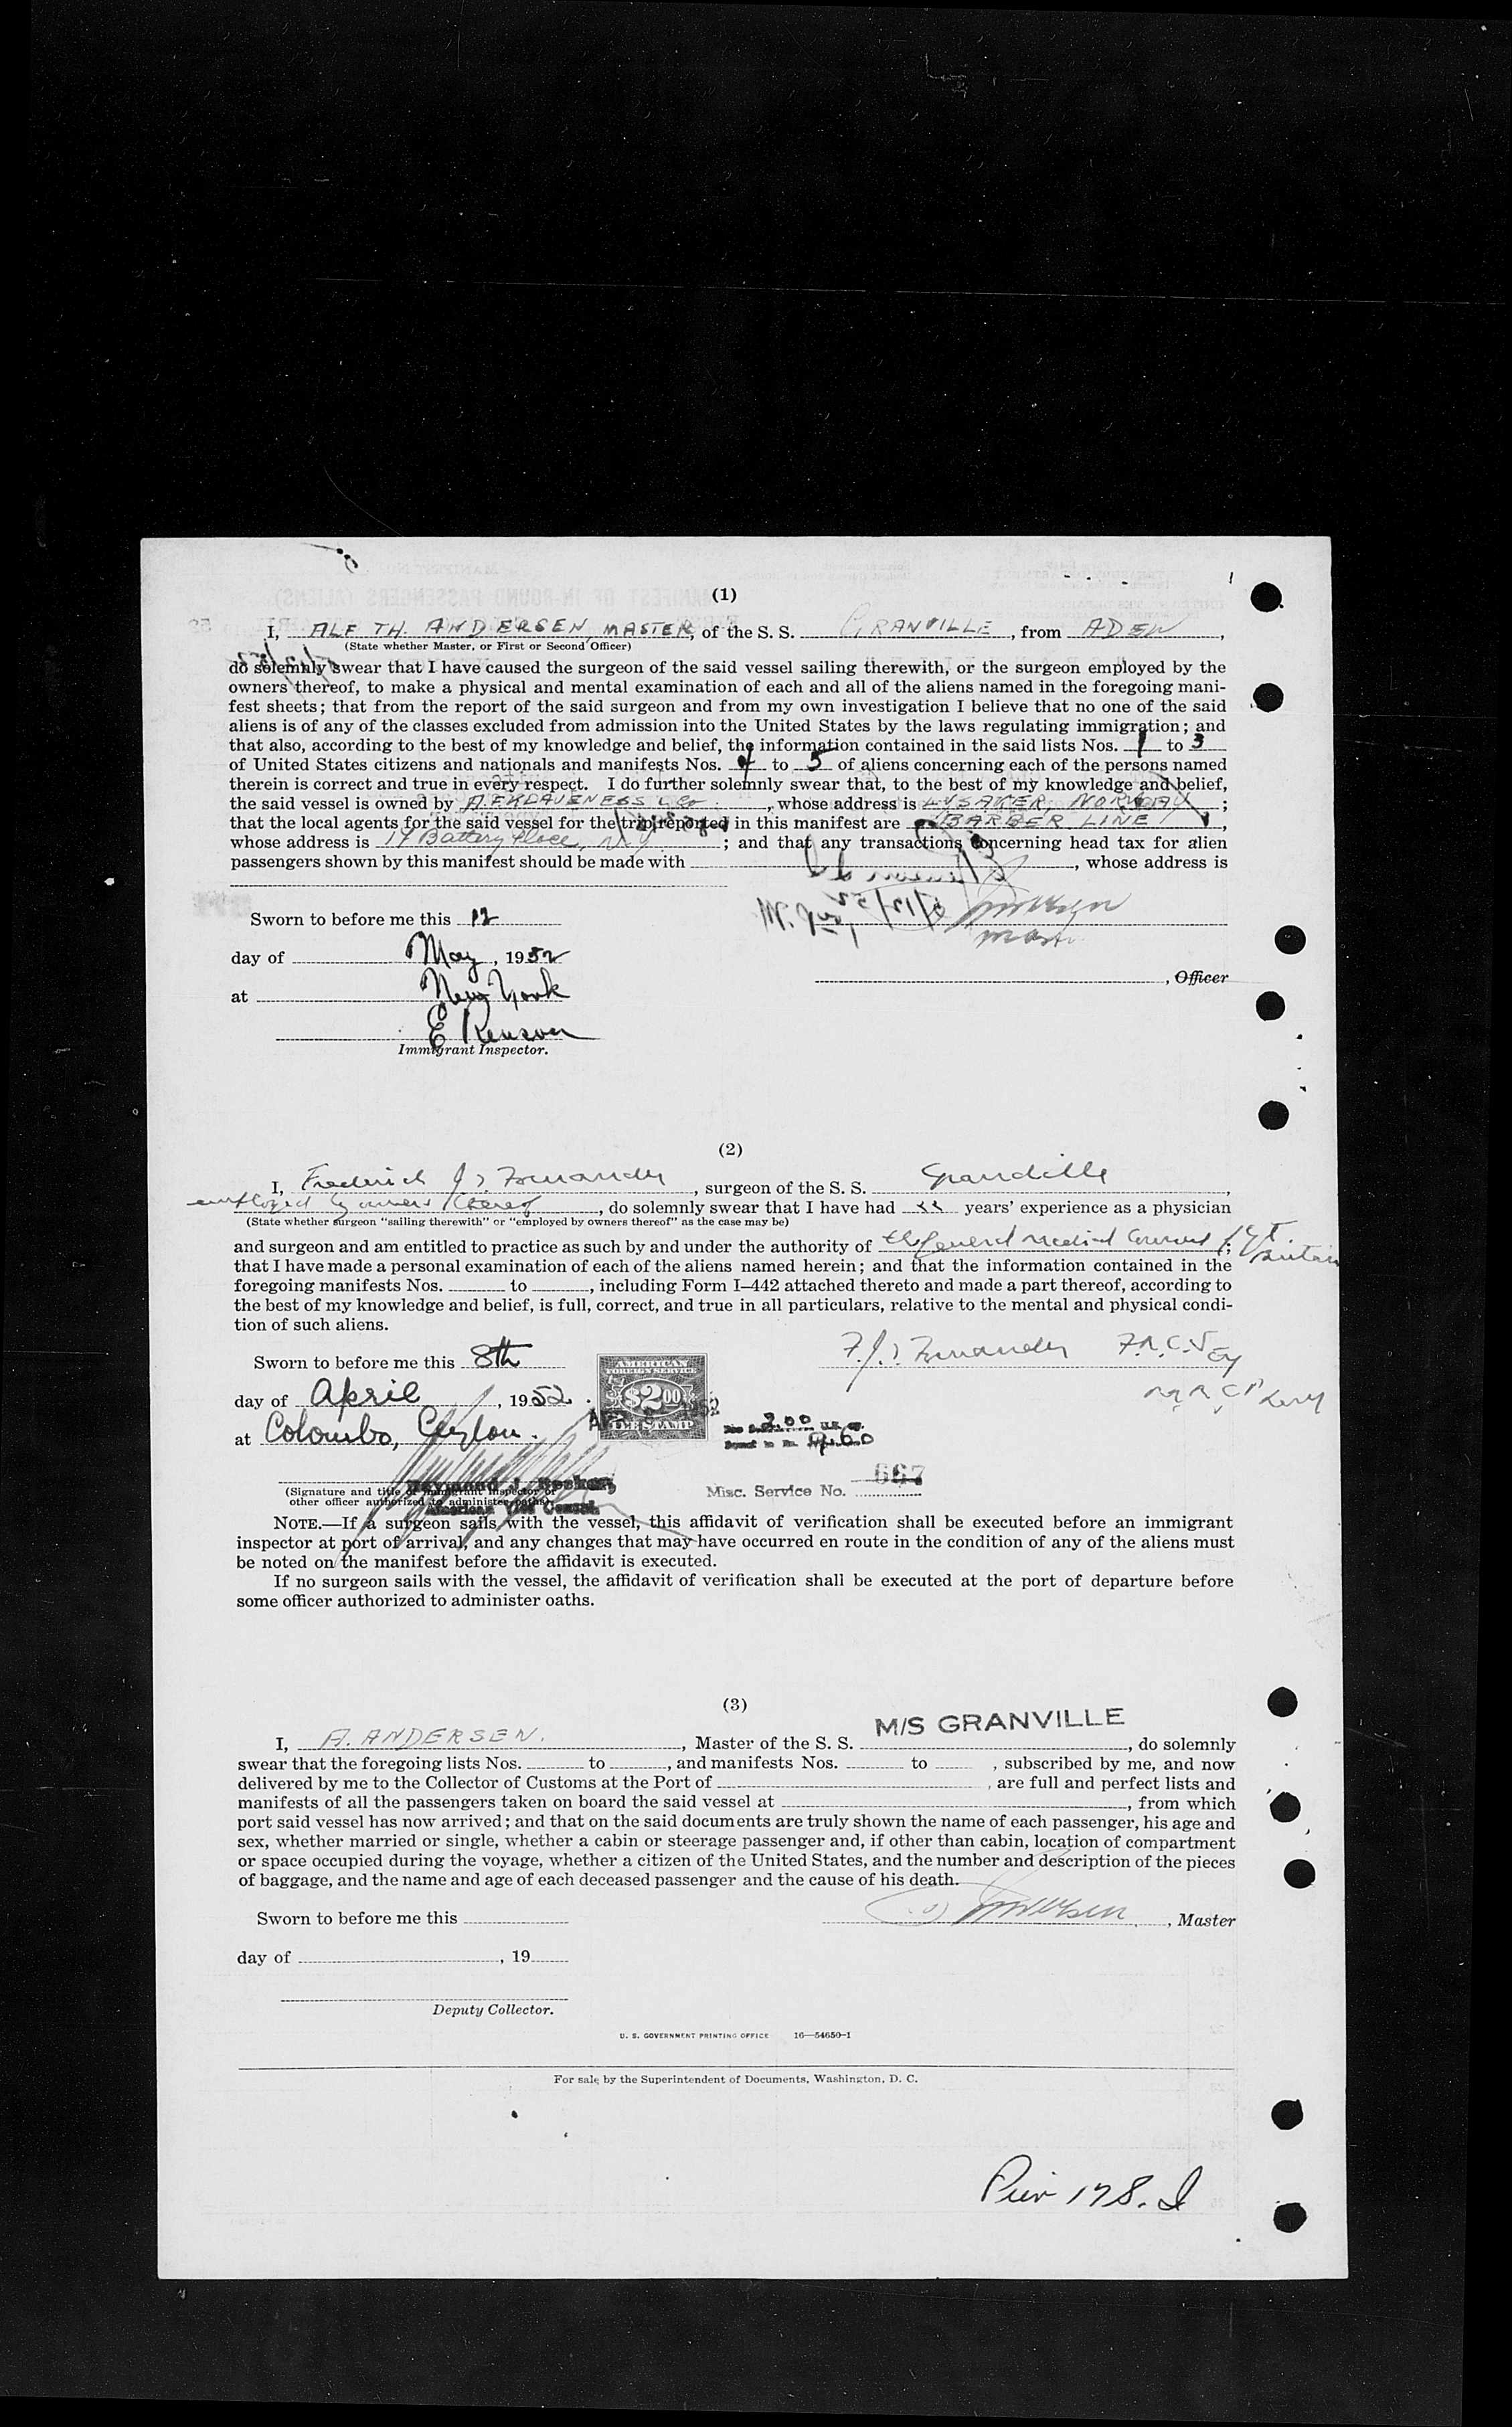 (1)
I, ALF TH. ANDERSEN, MASTER, of the S. S. GRANVILLE, from ADEN,
(State whether Master, or First or Second Officer)
do solemnly swear that I have caused the surgeon of the said vessel sailing therewith, or the surgeon employed by the
owners thereof, to make a physical and mental examination of each and all of the aliens named in the foregoing mani-
fest sheets; that from the report of the said surgeon and from my own investigation I believe that no one of the said
aliens is of any of the classes excluded from admission into the United States by the laws regulating immigration; and
that also, according to the best of my knowledge and belief, the information contained in the said lists Nos. 1 to 3
of United States citizens and nationals and manifests Nos. 4 to 5 of aliens concerning each of the persons named
therein is correct and true in every respect. I do further solemnly swear that, to the best of my knowledge and belief,
the said vessel is owned by , whose address is LYSAKER, NORWAY ;
that the local agents for the said vessel for the trip reported in this manifest are BARBER LINE ,
whose address is 17 Battery Place, N.Y. ; and that any transactions concerning head tax for alien
passengers shown by this manifest should be made with , whose address is
Sworn to before me this 12
day of May, 1952
at New York
E Renson
Immigrant Inspector.
Andersen
Master
, Officer
(2)
I, Frederick J. , surgeon of the S. S. Grandille,
employed by owners thereof, do solemnly swear that I have had years' experience as a physician
(State whether surgeon "sailing therewith" or "employed by owners thereof" as the case may be)
and surgeon and am entitled to practice as such by and under the authority of the General Medical Council Gt. Britain;
that I have made a personal examination of each of the aliens named herein; and that the information contained in the
foregoing manifests Nos. to , including Form I–442 attached thereto and made a part thereof, according to
the best of my knowledge and belief, is full, correct, and true in all particulars, relative to the mental and physical condi-
tion of such aliens.
Sworn to before me this 8th
day of April, 1952.
at Colombo, Ceylon.
AMERICAN
FOREIGN SERVICE
$2.00
FEE STAMP
F.R.C.S
(Signature and title of immigrant inspector or
other officer authorized to administer oaths)
American Vice Consul
Misc. Service No. 667
NOTE.—If a surgeon sails with the vessel, this affidavit of verification shall be executed before an immigrant
inspector at port of arrival, and any changes that may have occurred en route in the condition of any of the aliens must
be noted on the manifest before the affidavit is executed.
If no surgeon sails with the vessel, the affidavit of verification shall be executed at the port of departure before
some officer authorized to administer oaths.
(3)
I, A. ANDERSEN., Master of the S. S. M/S GRANVILLE, do solemnly
swear that the foregoing lists Nos. to , and manifests Nos. to , subscribed by me, and now
delivered by me to the Collector of Customs at the Port of , are full and perfect lists and
manifests of all the passengers taken on board the said vessel at , from which
port said vessel has now arrived; and that on the said documents are truly shown the name of each passenger, his age and
sex, whether married or single, whether a cabin or steerage passenger and, if other than cabin, location of compartment
or space occupied during the voyage, whether a citizen of the United States, and the number and description of the pieces
of baggage, and the name and age of each deceased passenger and the cause of his death.
Sworn to before me this
Andersen, Master
day of , 19
Deputy Collector.
U. S. GOVERNMENT PRINTING OFFICE 16—54650-1
For sale by the Superintendent of Documents, Washington, D. C.
Pier 178. I